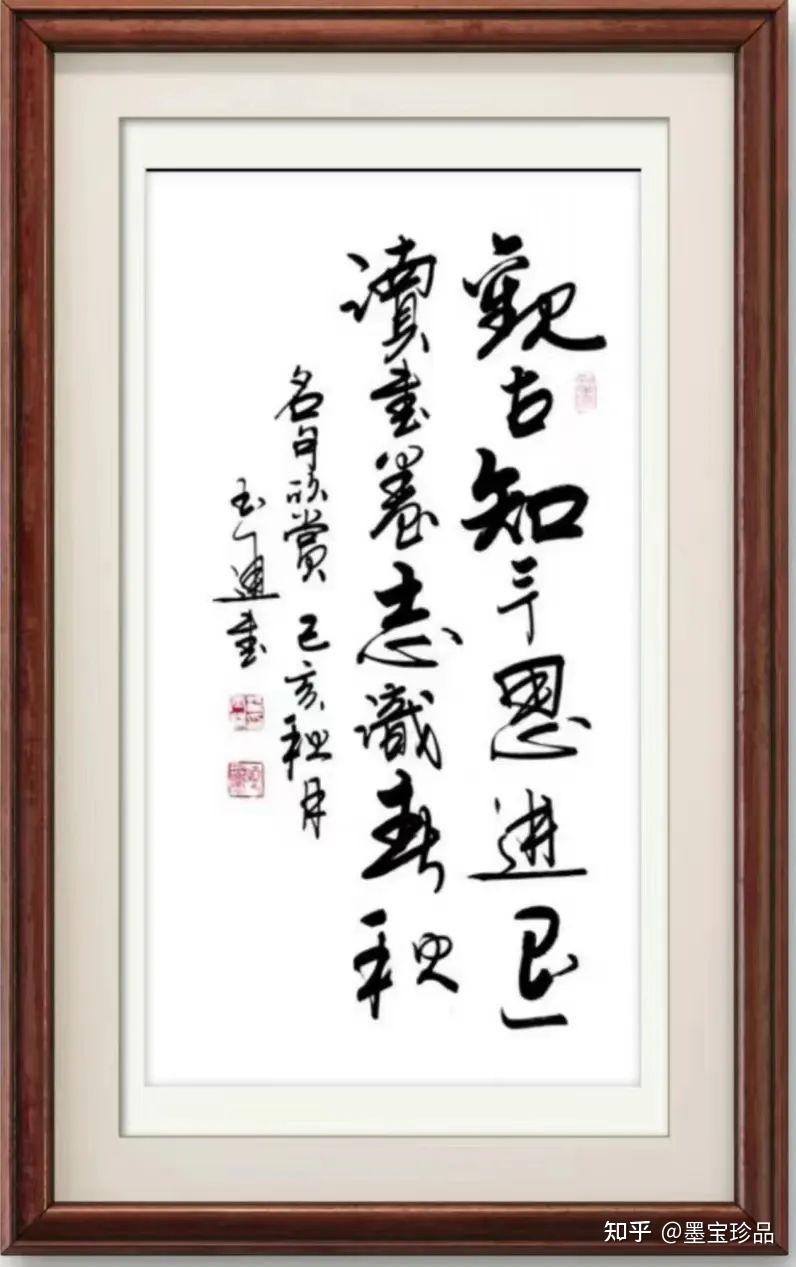 觀古知今思進退
讀書養志識春秋
名句欣賞 己亥秋月
書
知乎 @墨宝珍品